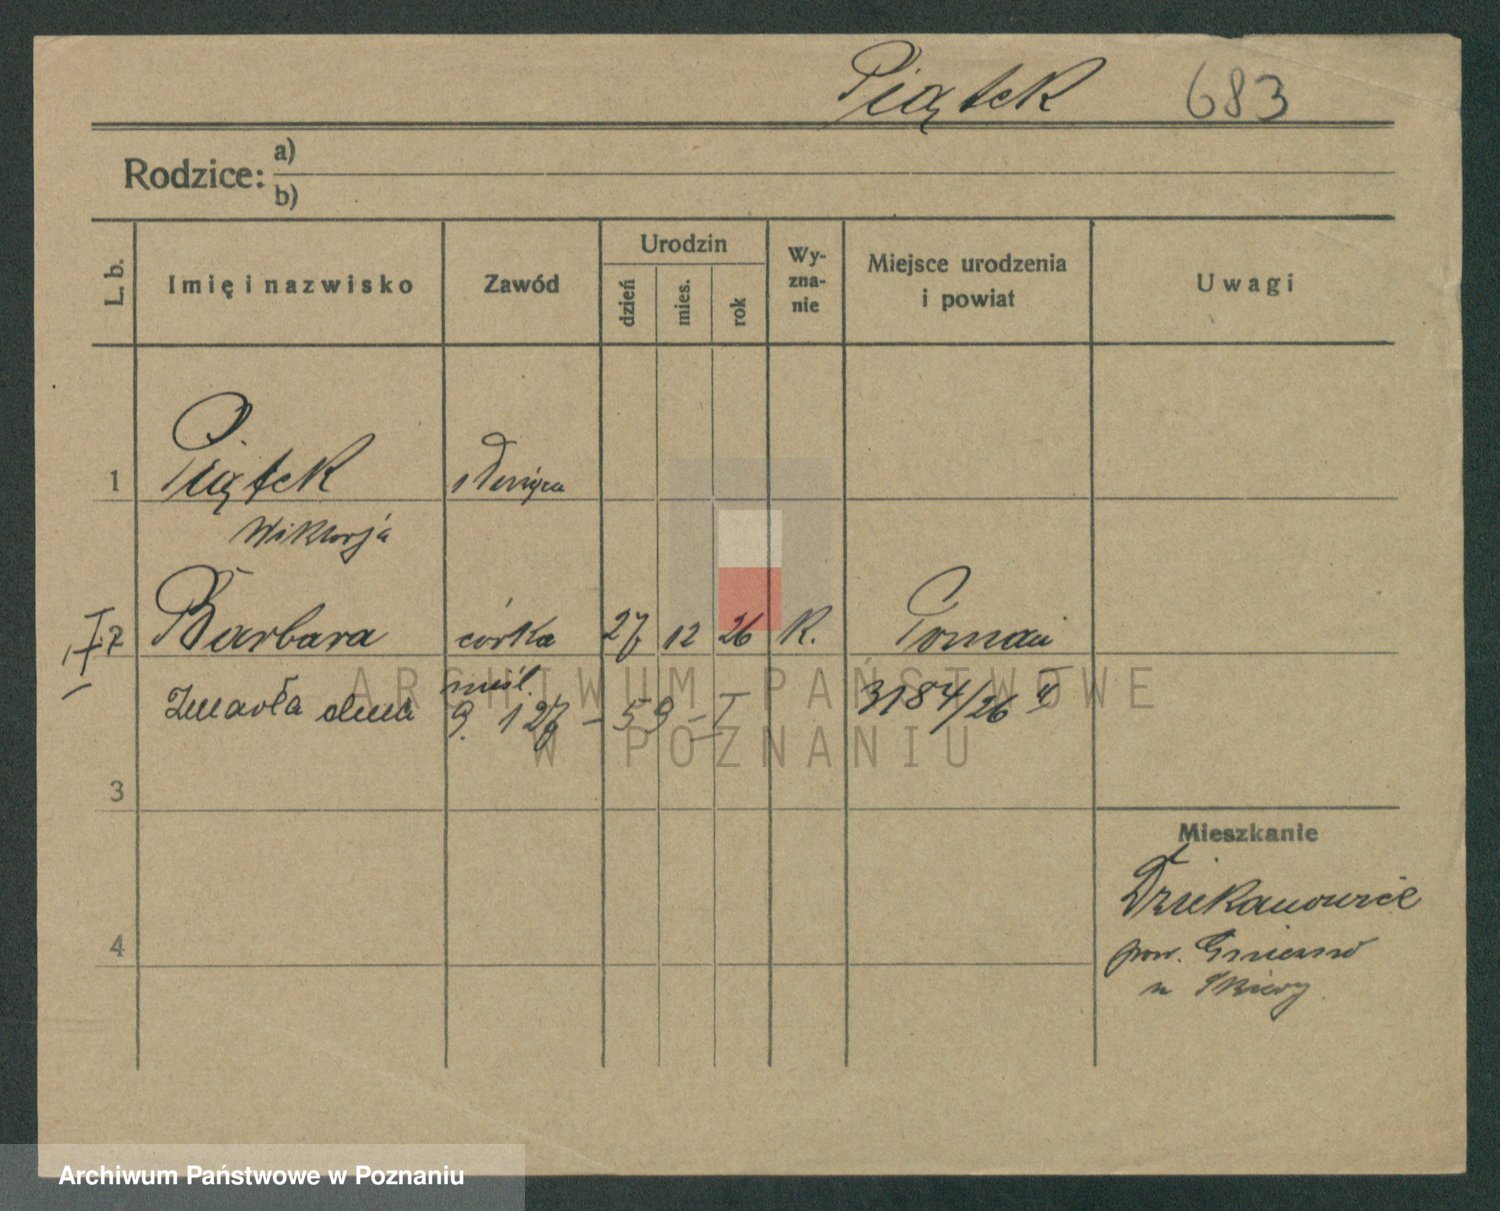 Piątek 683
Rodzice: a)
b)
L. b. Imię i nazwisko Zawód Urodzin dzień mies. rok Wyznanie Miejsce urodzenia i powiat Uwagi
1 Piątek
Wiktorja
2 Barbara córka 27 12 26 K. Poznań
Zmarła dnia 9. I 27 – 59 – I 3184/26 II
3
Mieszkanie
Dziekanowice
4
pow. Gniezno
ARCHIWUM PAŃSTWOWE
W POZNANIU
Archiwum Państwowe w Poznaniu